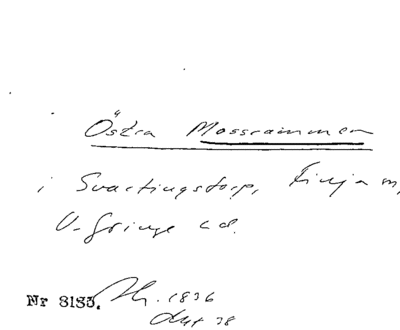 Östra Mossrammen
i Svartingstorp, Finja sn,
V. Göinge hd.
Nr 8185. 1836